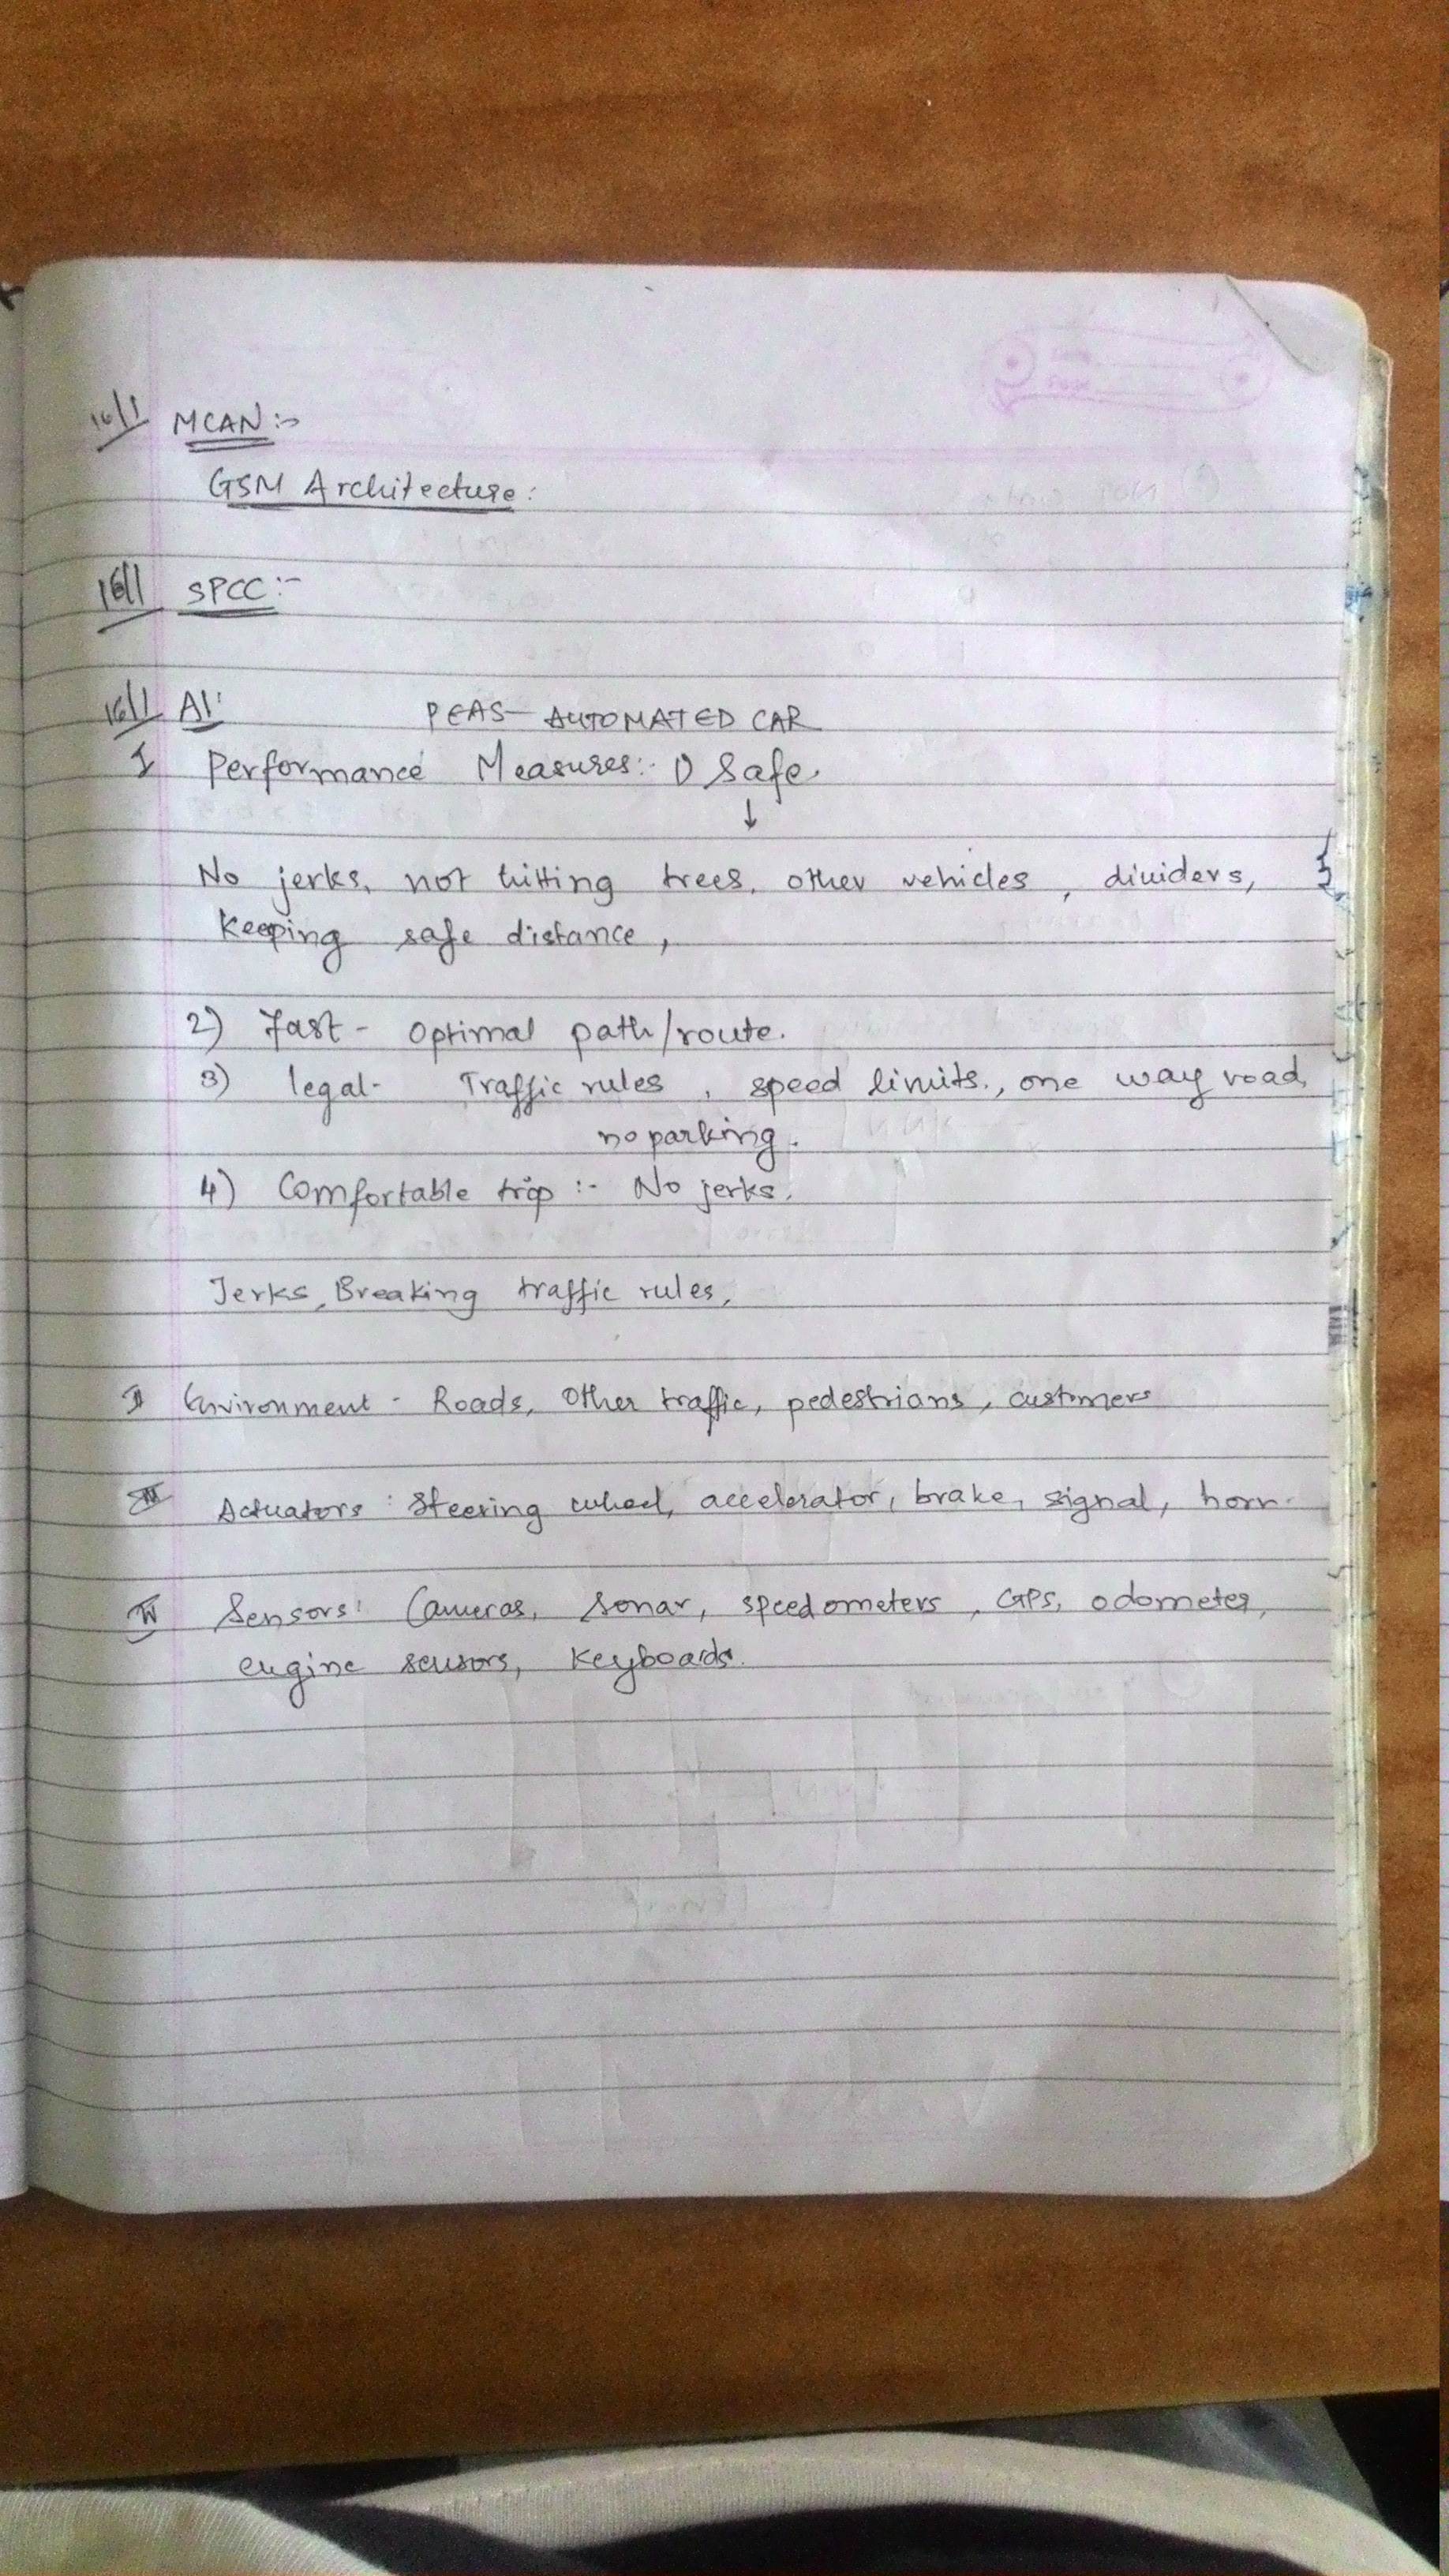 16/1 MCAN:-
GSM Architecture:
16/1 SPCC:-
16/1 AI:
PEAS- AUTOMATED CAR
I Performance Measures:- 1) Safe.
↓
No jerks, not hitting trees, other vehicles, dividers,
Keeping safe distance,
2) Fast - Optimal path/route.
3) legal- Traffic rules, speed limits., one way road,
no parking.
4) Comfortable trip :- No jerks.
Jerks, Breaking traffic rules,
II Environment - Roads, Other traffic, pedestrians, customers
III Actuators: Steering wheel, accelerator, brake, signal, horn.
IV Sensors: Cameras, Sonar, speedometers, GPS, odometer,
engine sensors, keyboards.